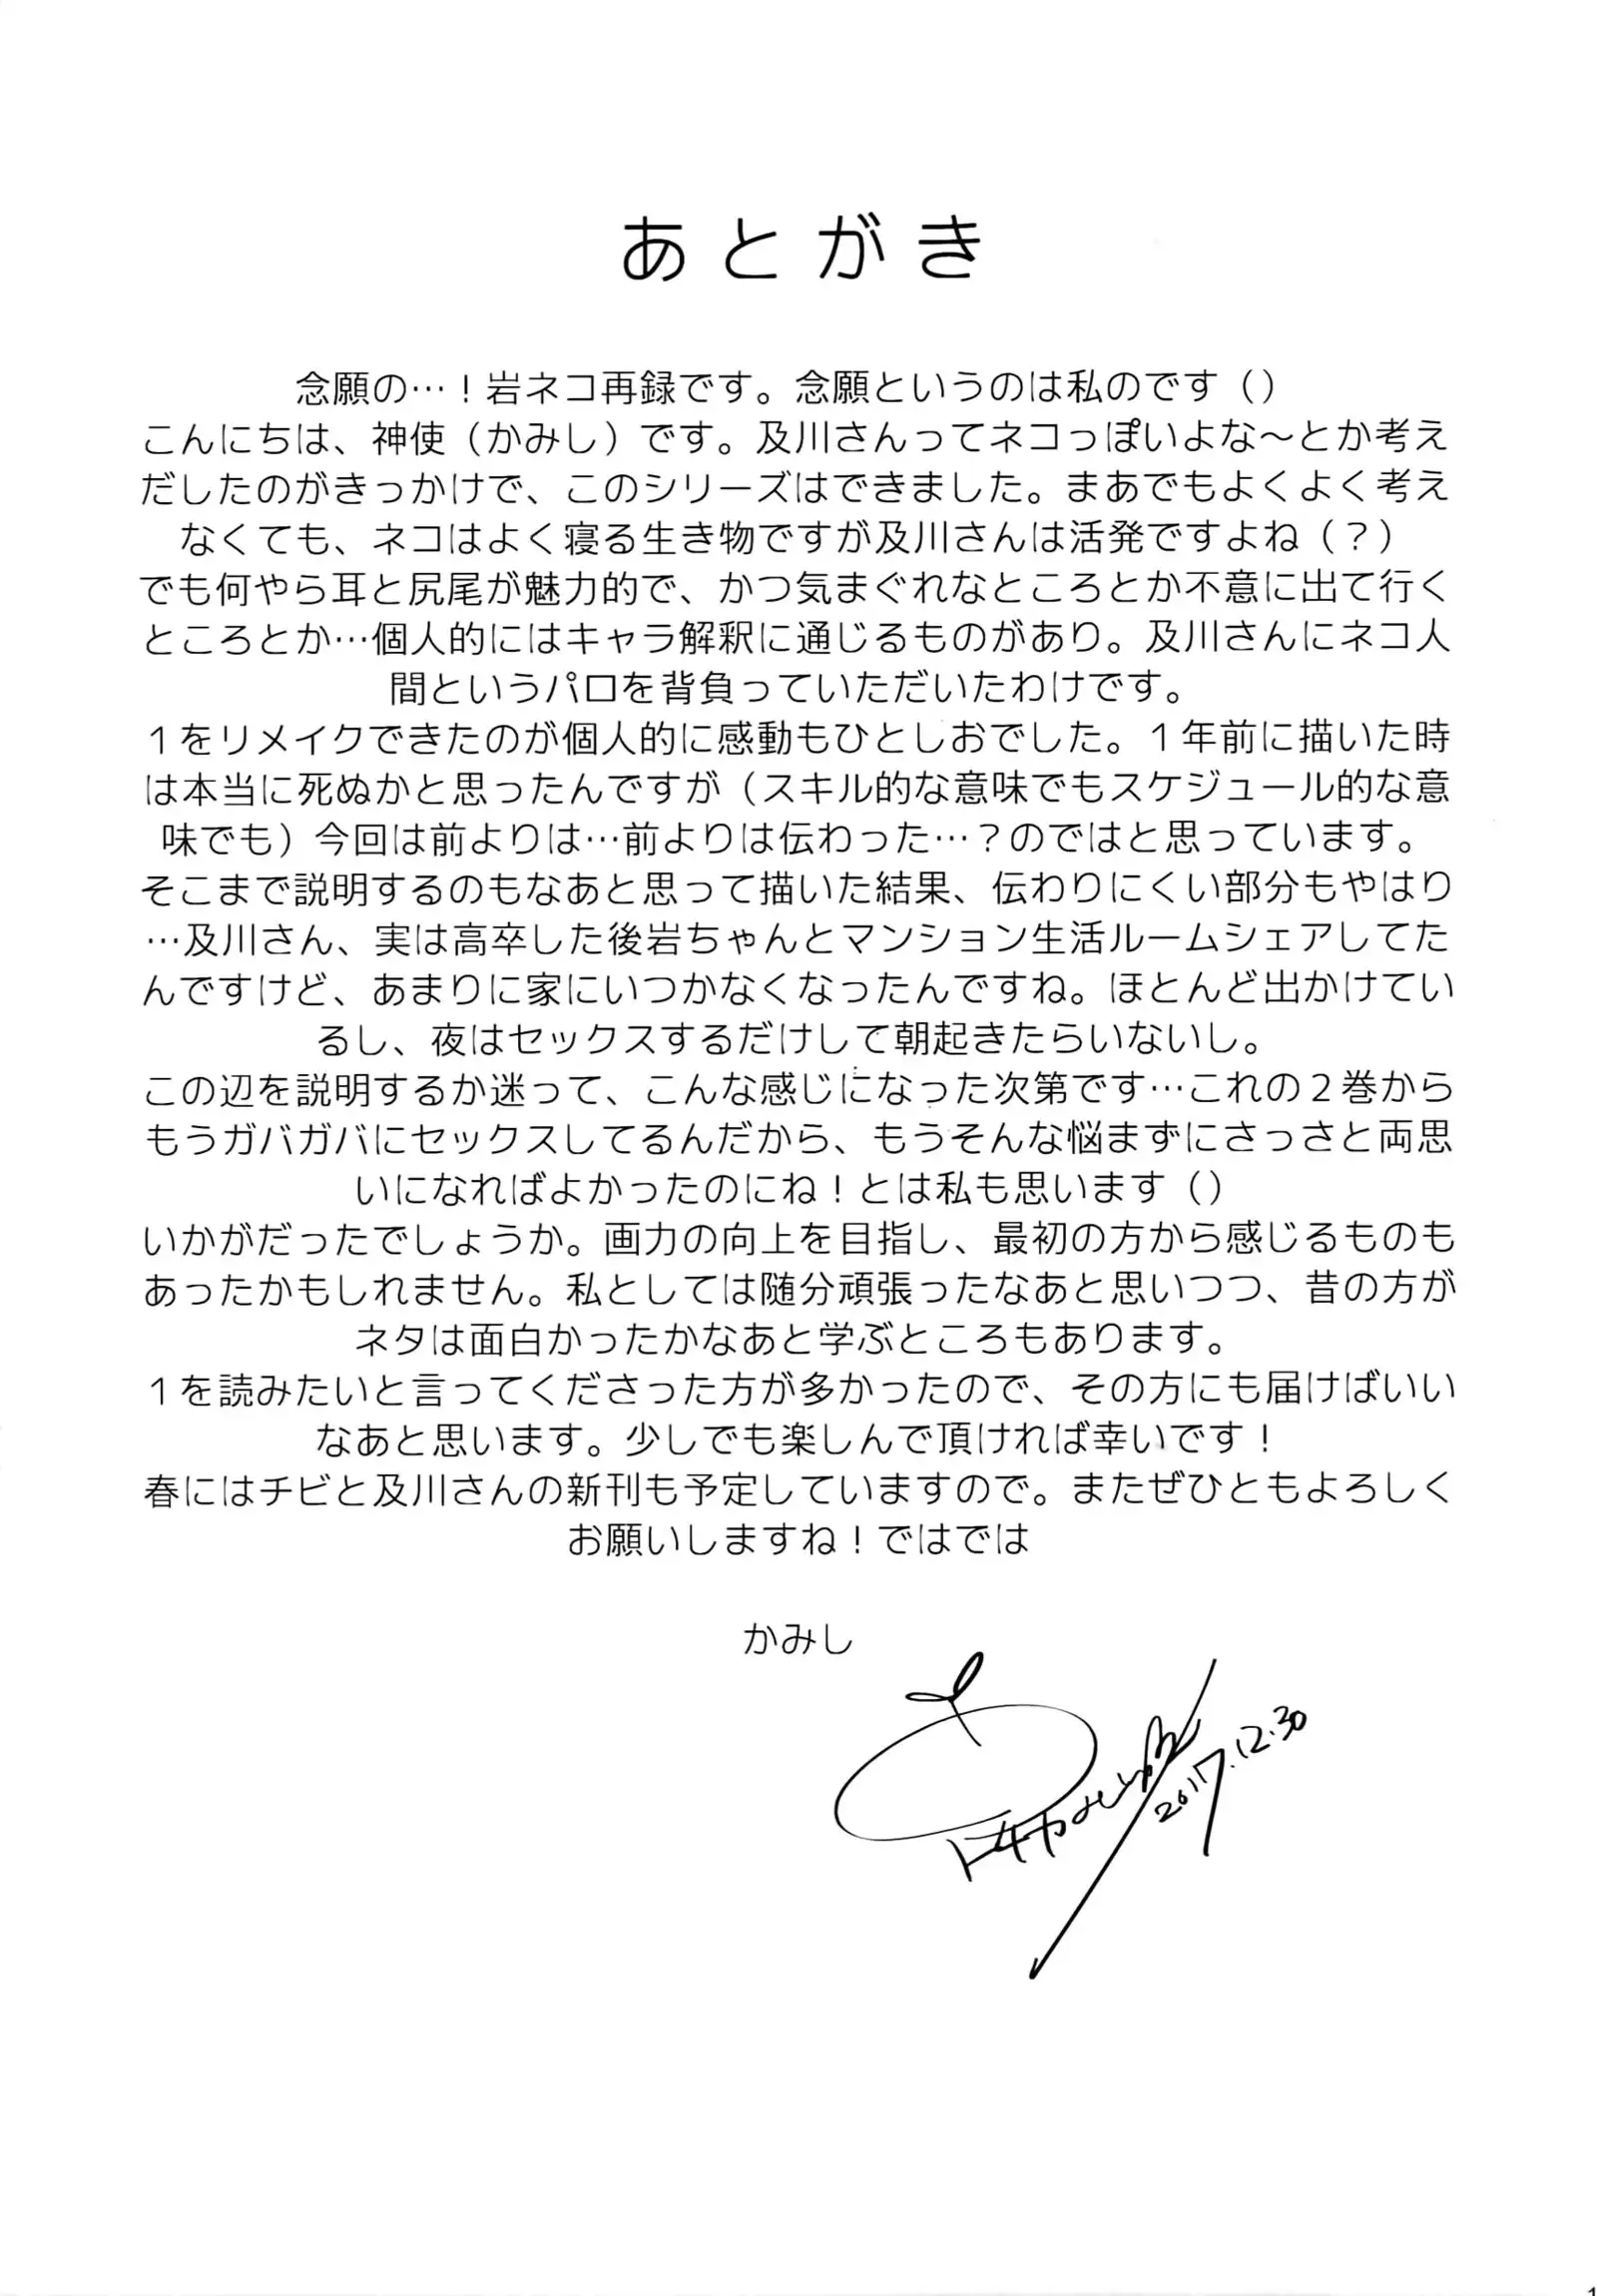 あとがき
念願の…！岩ネコ再録です。念願というのは私のです（）
こんにちは、神使（かみし）です。及川さんってネコっぽいよな～とか考え
だしたのがきっかけで、このシリーズはできました。まあでもよくよく考え
なくても、ネコはよく寝る生き物ですが及川さんは活発ですよね（？）
でも何やら耳と尻尾が魅力的で、かつ気まぐれなところとか不意に出て行く
ところとか…個人的にはキャラ解釈に通じるものがあり。及川さんにネコ人
間というパロを背負っていただいたわけです。
１をリメイクできたのが個人的に感動もひとしおでした。１年前に描いた時
は本当に死ぬかと思ったんですが（スキル的な意味でもスケジュール的な意
味でも）今回は前よりは…前よりは伝わった…？のではと思っています。
そこまで説明するのもなあと思って描いた結果、伝わりにくい部分もやはり
…及川さん、実は高卒した後岩ちゃんとマンション生活ルームシェアしてた
んですけど、あまりに家にいつかなくなったんですね。ほとんど出かけてい
るし、夜はセックスするだけして朝起きたらいないし。
この辺を説明するか迷って、こんな感じになった次第です…これの２巻から
もうガバガバにセックスしてるんだから、もうそんな悩まずにさっさと両思
いになればよかったのにね！とは私も思います（）
いかがだったでしょうか。画力の向上を目指し、最初の方から感じるものも
あったかもしれません。私としては随分頑張ったなあと思いつつ、昔の方が
ネタは面白かったかなあと学ぶところもあります。
１を読みたいと言ってくださった方が多かったので、その方にも届けばいい
なあと思います。少しでも楽しんで頂ければ幸いです！
春にはチビと及川さんの新刊も予定していますので。またぜひともよろしく
お願いしますね！ではでは
かみし
2017.12.30
1